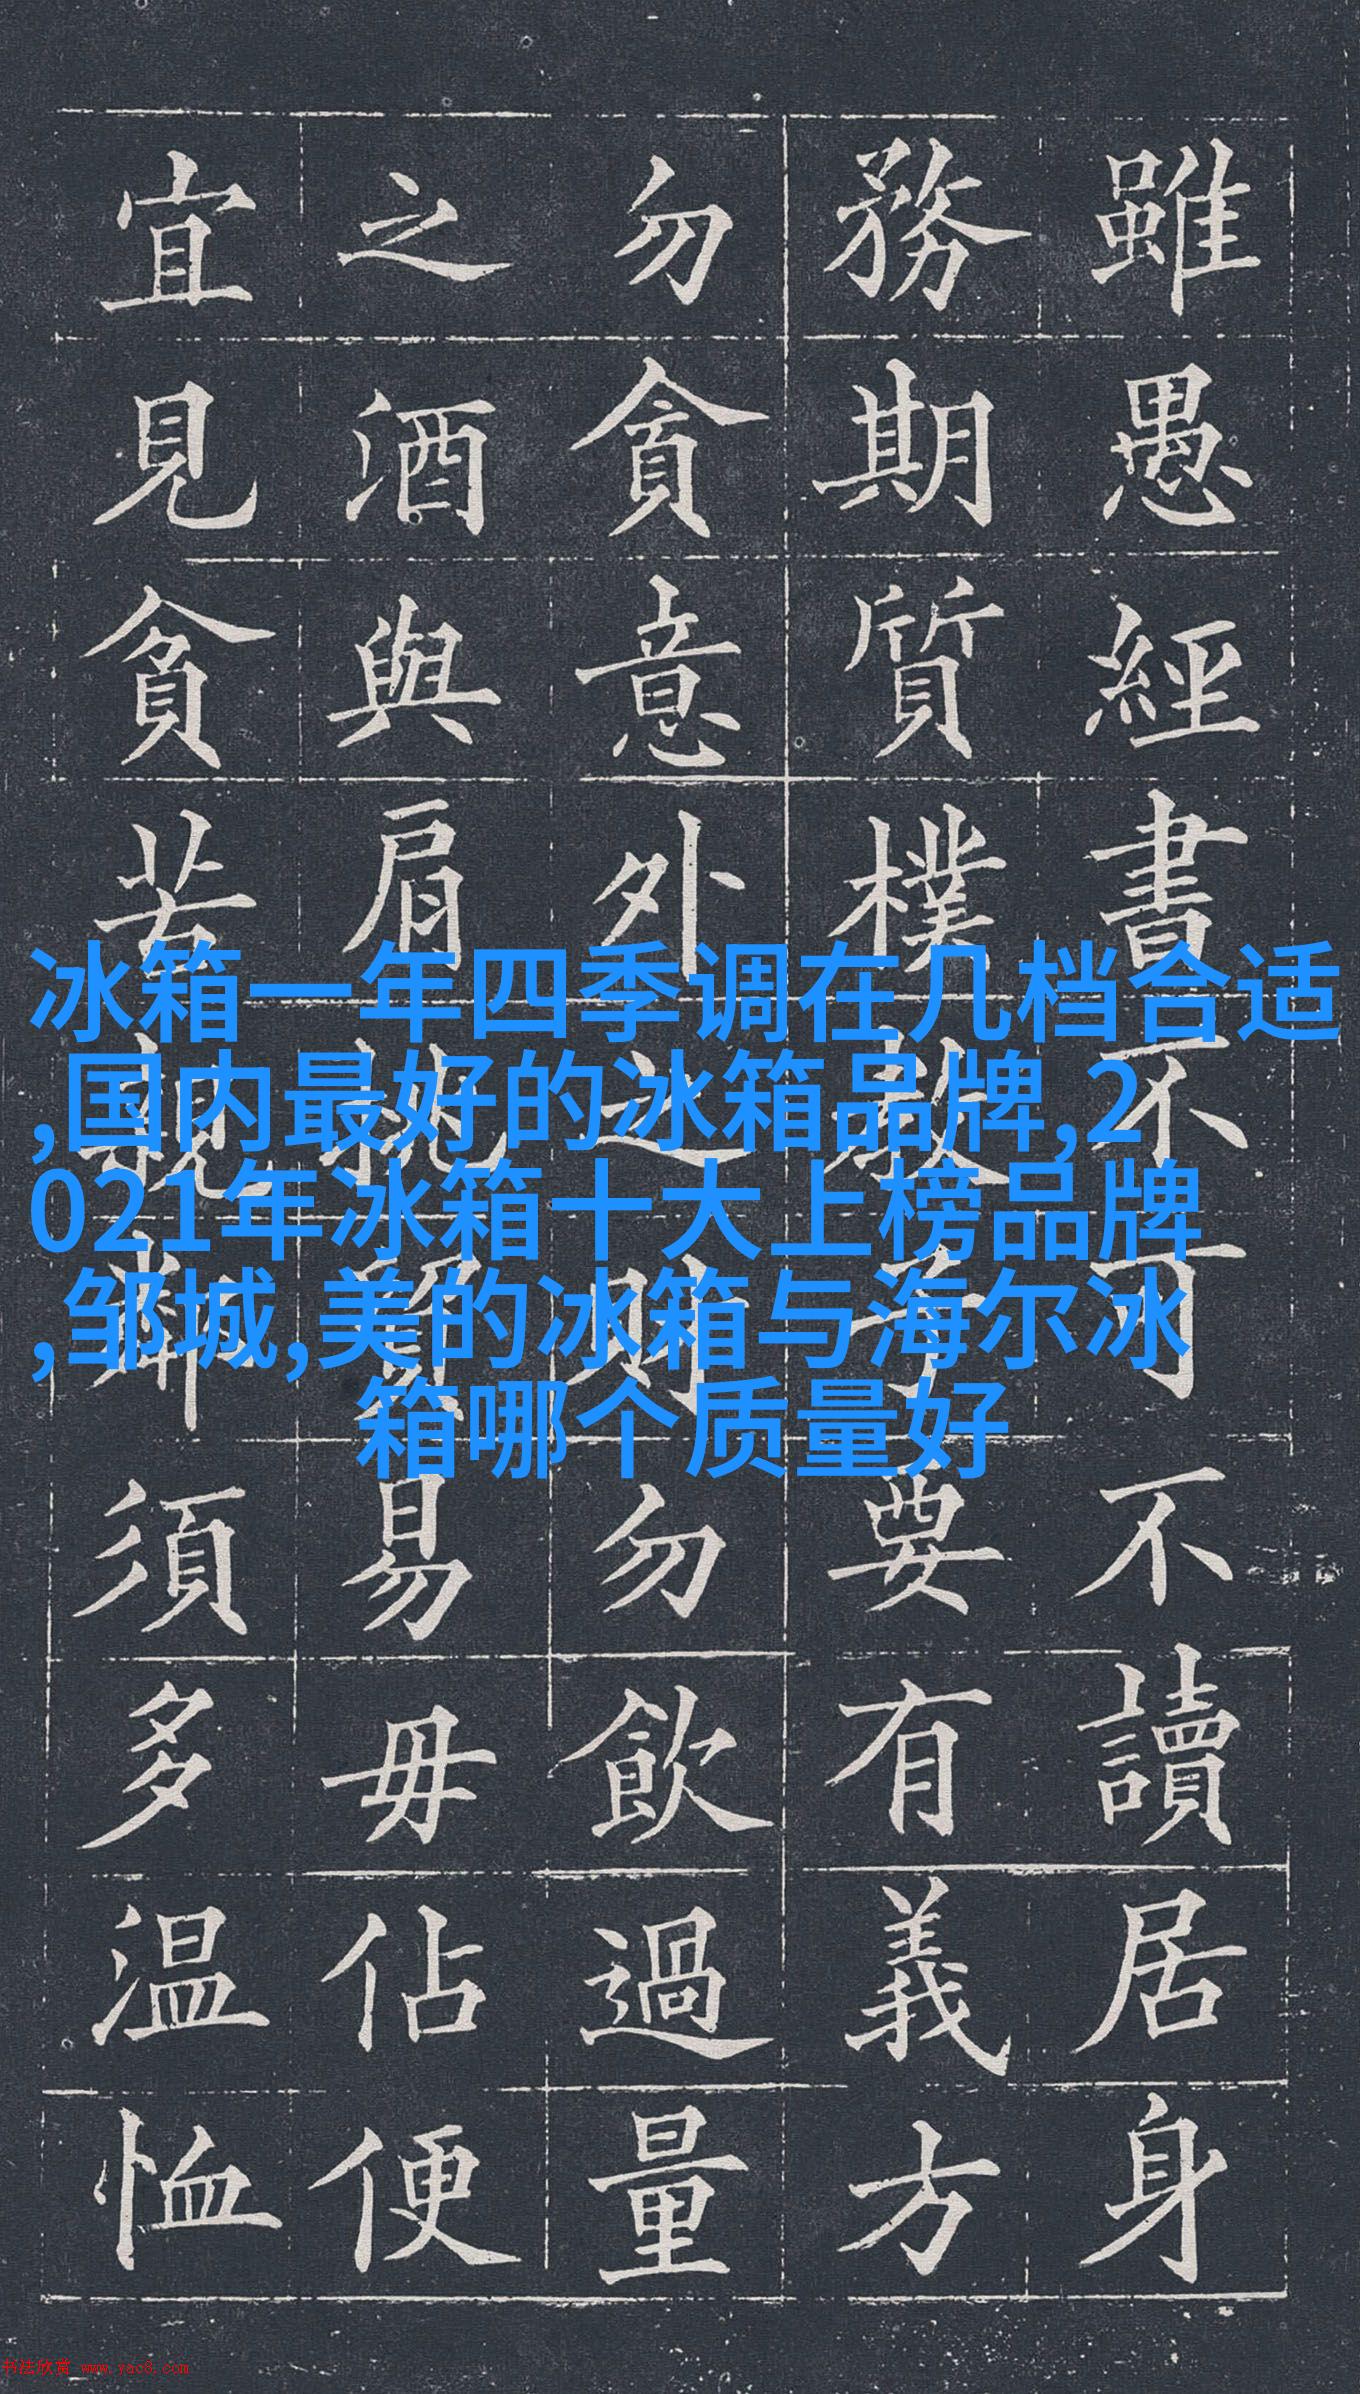 雖愚經書不可不讀居身
務期質樸教子要有義方
勿貪意外之財勿飲過量
之酒與肩挑貿易毋佔便
宜見貧苦親鄰須多温恤
冰箱一年四季调在几档合适
,国内最好的冰箱品牌,2
021年冰箱十大上榜品牌
,邹城,美的冰箱与海尔冰
箱哪个质量好
书法欣赏 www.yac8.com